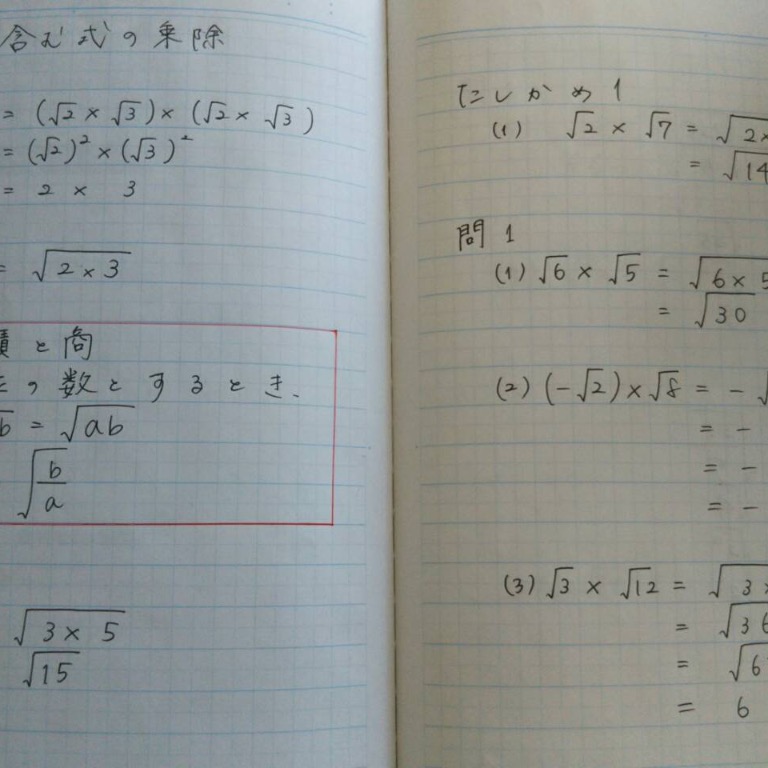 含む式の乗除
= (√2 × √3) × (√2 × √3)
= (√2)² × (√3)²
= 2 × 3
= √(2 × 3)
積と商
の数とするとき、
= √(ab)
√(b/a)
√(3 × 5)
√15
たしかめ1
(1) √2 × √7 = √2×
= √14
問1
(1) √6 × √5 = √6×5
= √30
(2) (-√2) × √8 = - √
= -
= -
= -
(3) √3 × √12 = √3×
= √36
= √6
= 6